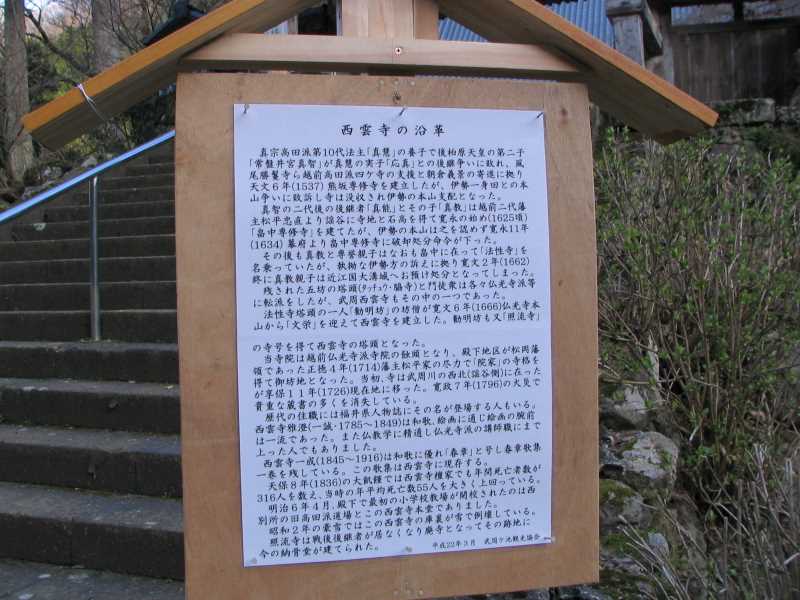 西雲寺の沿革
真宗高田派第10代法主「真慧」の養子で後柏原天皇の第二子
「常盤井宮真智」が真慧の実子「応真」との後継争いに敗れ、風
尾勝鬘寺ら越前高田派四ケ寺の支援と朝倉義景の寄進に拠り
天文6年(1537)熊坂専修寺を建立したが、伊勢一身田との本
山争いに敗訴し寺は没収され伊勢の本山支配となった。
真智の二代後の後継者「真能」とその子「真教」は越前二代藩
主松平忠直より謡谷に寺地と石高を得て寛永の始め(1625頃)
「畠中専修寺」を建てたが、伊勢の本山は之を認めず寛永11年
(1634)幕府より畠中専修寺に破却処分命令が下った。
その後も真教と専誉親子はなおも畠中に在って「法性寺」を
名乗っていたが、執拗な伊勢方の訴えに拠り寛文2年(1662)
終に真教親子は近江国大溝城へお預け処分となってしまった。
残された五坊の塔頭(タッチュウ・脇寺)と門徒衆は各々仏光寺派等
に転派をしたが、武周西雲寺もその中の一つであった。
法性寺塔頭の一人「勧明坊」の坊僧が寛文6年(1666)仏光寺本
山から「文栄」を迎えて西雲寺を建立した。勧明坊も又「照流寺」
の寺号を得て西雲寺の塔頭となった。
当寺院は越前仏光寺派寺院の触頭となり、殿下地区が松岡藩
領であった正徳4年(1714)藩主松平家の尽力で「院家」の寺格を
得て御坊地となった。当初、寺は武周川の西北(謡谷側)に在った
が享保11年(1726)現在地に移った。寛政7年(1796)の火災で
貴重な蔵書の多くを消失している。
歴代の住職には福井県人物誌にその名が登場する人もいる。
西雲寺雅澄(一誠・1785~1849)は和歌、絵画に通じ絵画の腕前
は一流であった。また仏教学に精通し仏光寺派の講師職にまで
上った人でもありました。
西雲寺一成(1845~1916)は和歌に優れ「春章」と号し春章歌集
一巻を残している。この歌集は西雲寺に現存する。
天保8年(1836)の大飢饉では西雲寺檀家でも年間死亡者数が
316人を数え、当時の年平均死亡数55人を大きく上回っている。
明治6年4月、殿下で最初の小学校教場が開校されたのは西
別所の旧高田派道場とこの西雲寺本堂でありました。
昭和2年の豪雪ではこの西雲寺の庫裏が雪で倒壊している。
照流寺は戦後後継者が居なくなり廃寺となってその跡地に
今の納骨堂が建てられた。
平成22年3月 武周ケ池観光協会